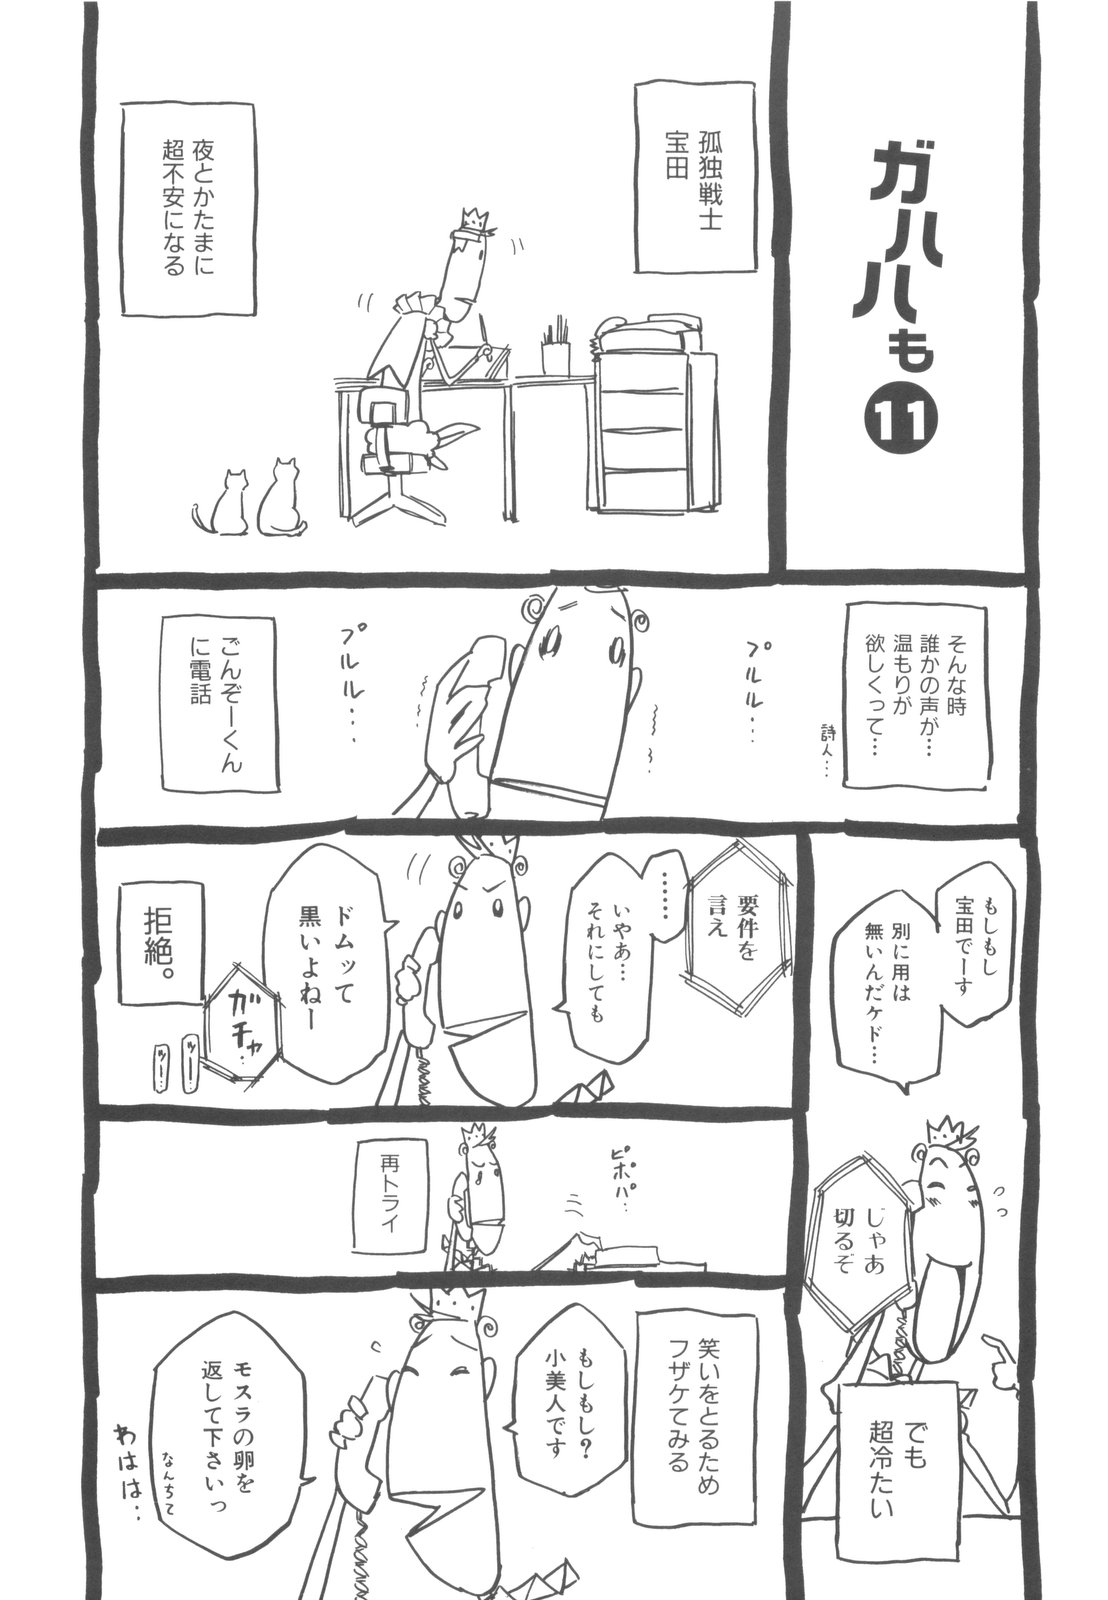 ガハハも
11
孤独戦士
宝田
夜とかたまに
超不安になる
そんな時
誰かの声が…
温もりが
欲しくって…
詩人…
プルルル…
プルルル…
ごんぞーくん
に電話
もしもし
宝田でーす
別に用は
無いんだケド…
じゃあ
切るぞ
でも
超冷たい
要件を
言え
………
いやあ…
それにしても
ドムッて
黒いよねー
ガチャ…
ツー…
ツー…
拒絶。
ピポパ…
再トライ
笑いをとるため
フザケてみる
もしもし？
小美人です
モスラの卵を
返して下さいっ
なんちて
わはは…